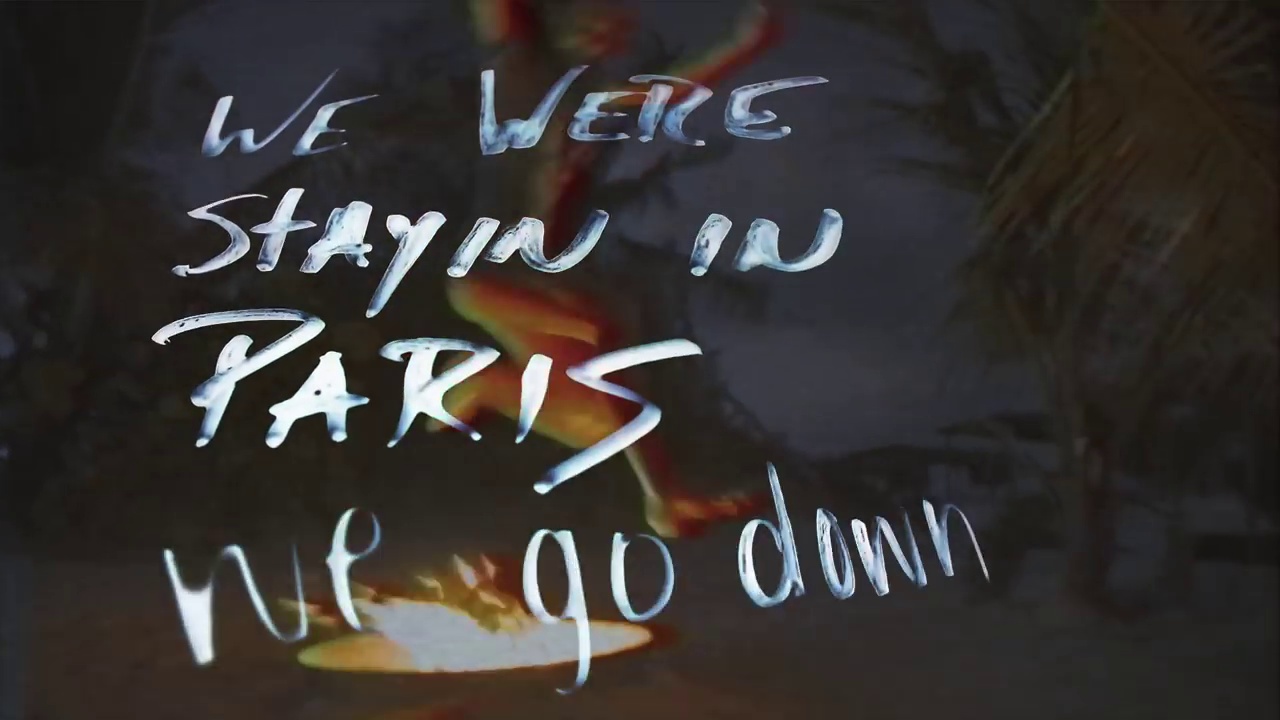 WE WERE
STAYIN IN
PARIS
we go down